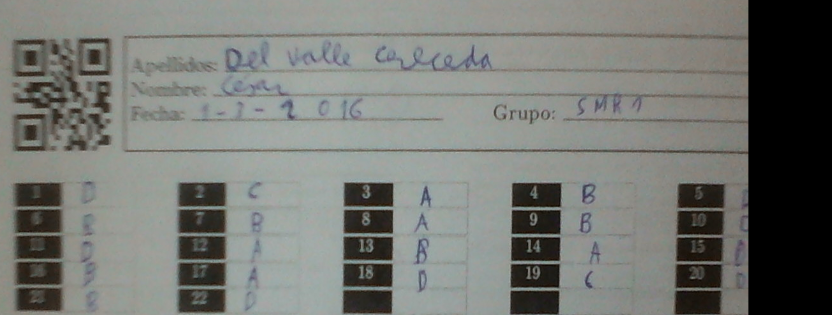 Apellidos: Del valle
Nombre: César
Fecha: 1-3-2016 Grupo: SMR1
1 D 2 C 3 A 4 B 5
6 B 7 B 8 A 9 B 10
11 D 12 A 13 B 14 A 15 D
16 B 17 A 18 D 19 C 20 D
22 D